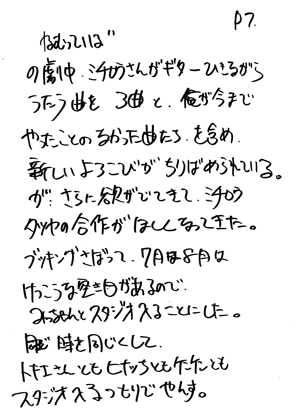 P7.
ねむっていば"
の劇中、ミチロウさんがギターひきながら
うたう曲を 3曲と、俺が今まで
やたことのなかった曲たち、を含め
新しいよろこびがちりばめられている。
が、さらに欲がでてきて、ミチロウ
タツヤの合作がほしくなってきた。
ブッキングさぼって、7月は8月は
けっこうな空き日があるので、
みっちゃんとスタジオ入ることにした。
時を同じくして、
トキエさんともヒナっちともケンケンとも
スタジオ入るつもりでやんす。